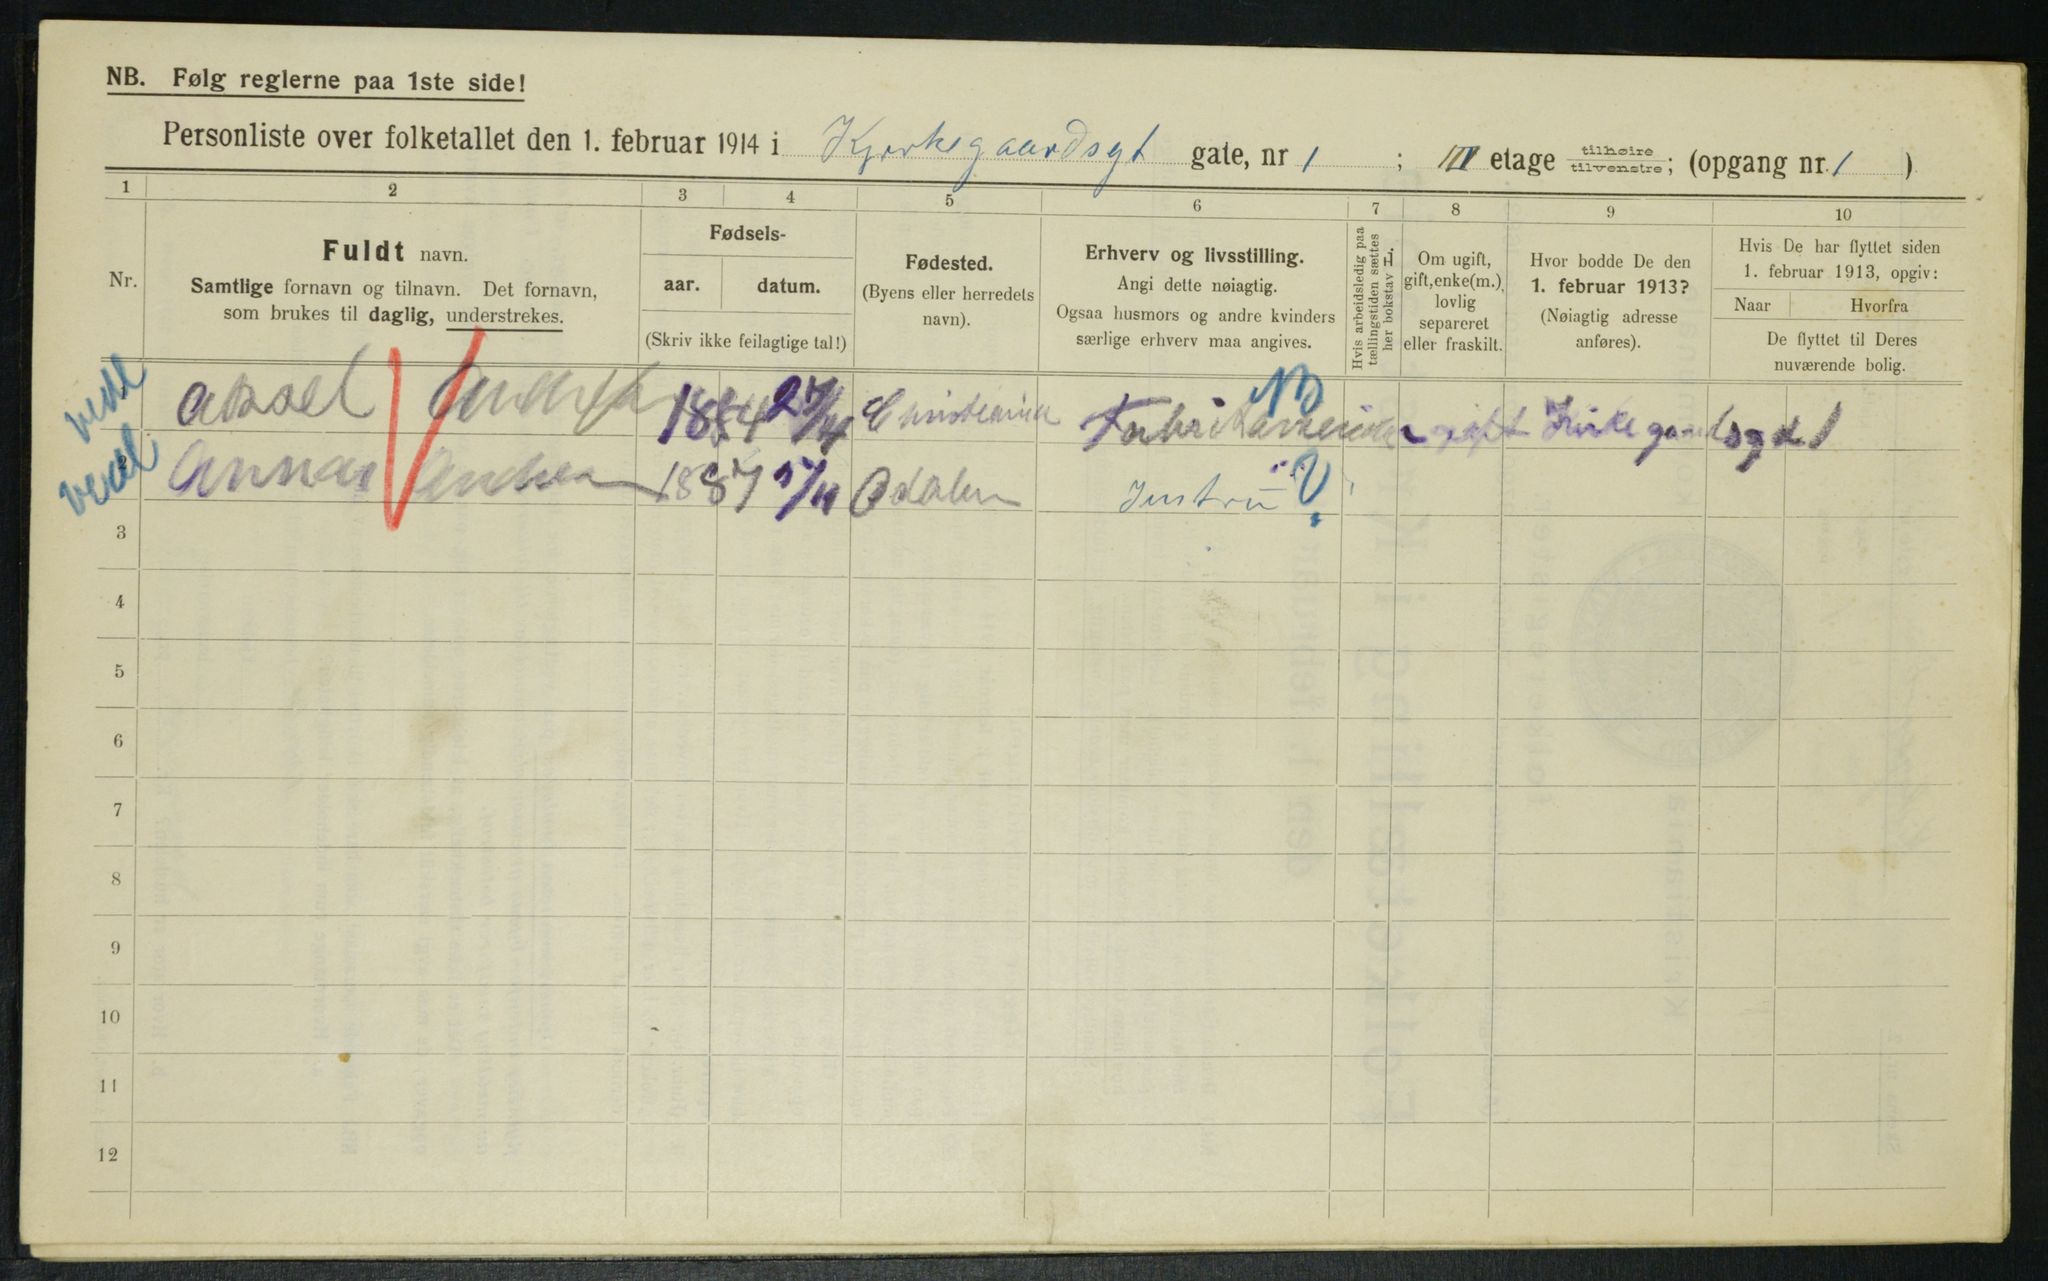 NB. Følg reglerne paa 1ste side!
Personliste over folketallet den 1. februar 1914 i Kjirkegaardsgt gate, nr 1 ; III etage tilhøire tilvenstre; (opgang nr. 1 )
1 2 3 4 5 6 7 8 9 10
Nr.
Fuldt navn.
Samtlige fornavn og tilnavn. Det fornavn,
som brukes til daglig, understrekes.
Fødsels-
aar. datum.
(Skriv ikke feilagtige tal!)
Fødested.
(Byens eller herredets
navn).
Erhverv og livsstilling.
Angi dette nøiagtig.
Ogsaa husmors og andre kvinders
særlige erhverv maa angives.
Hvis arbeidsledig paa
tællingstiden sættes
her bokstav L.
Om ugift,
gift, enke(m.),
lovlig
separeret
eller fraskilt.
Hvor bodde De den
1. februar 1913?
(Nøiagtig adresse
anføres).
Hvis De har flyttet siden
1. februar 1913, opgiv:
Naar Hvorfra
De flyttet til Deres
nuværende bolig.
NB
Aksel 1884 27/4 Christiania gift Kirkegaardsgt 1
2 Anna 1887 Odalen Hustru ?
3
4
5
6
7
8
9
10
11
12